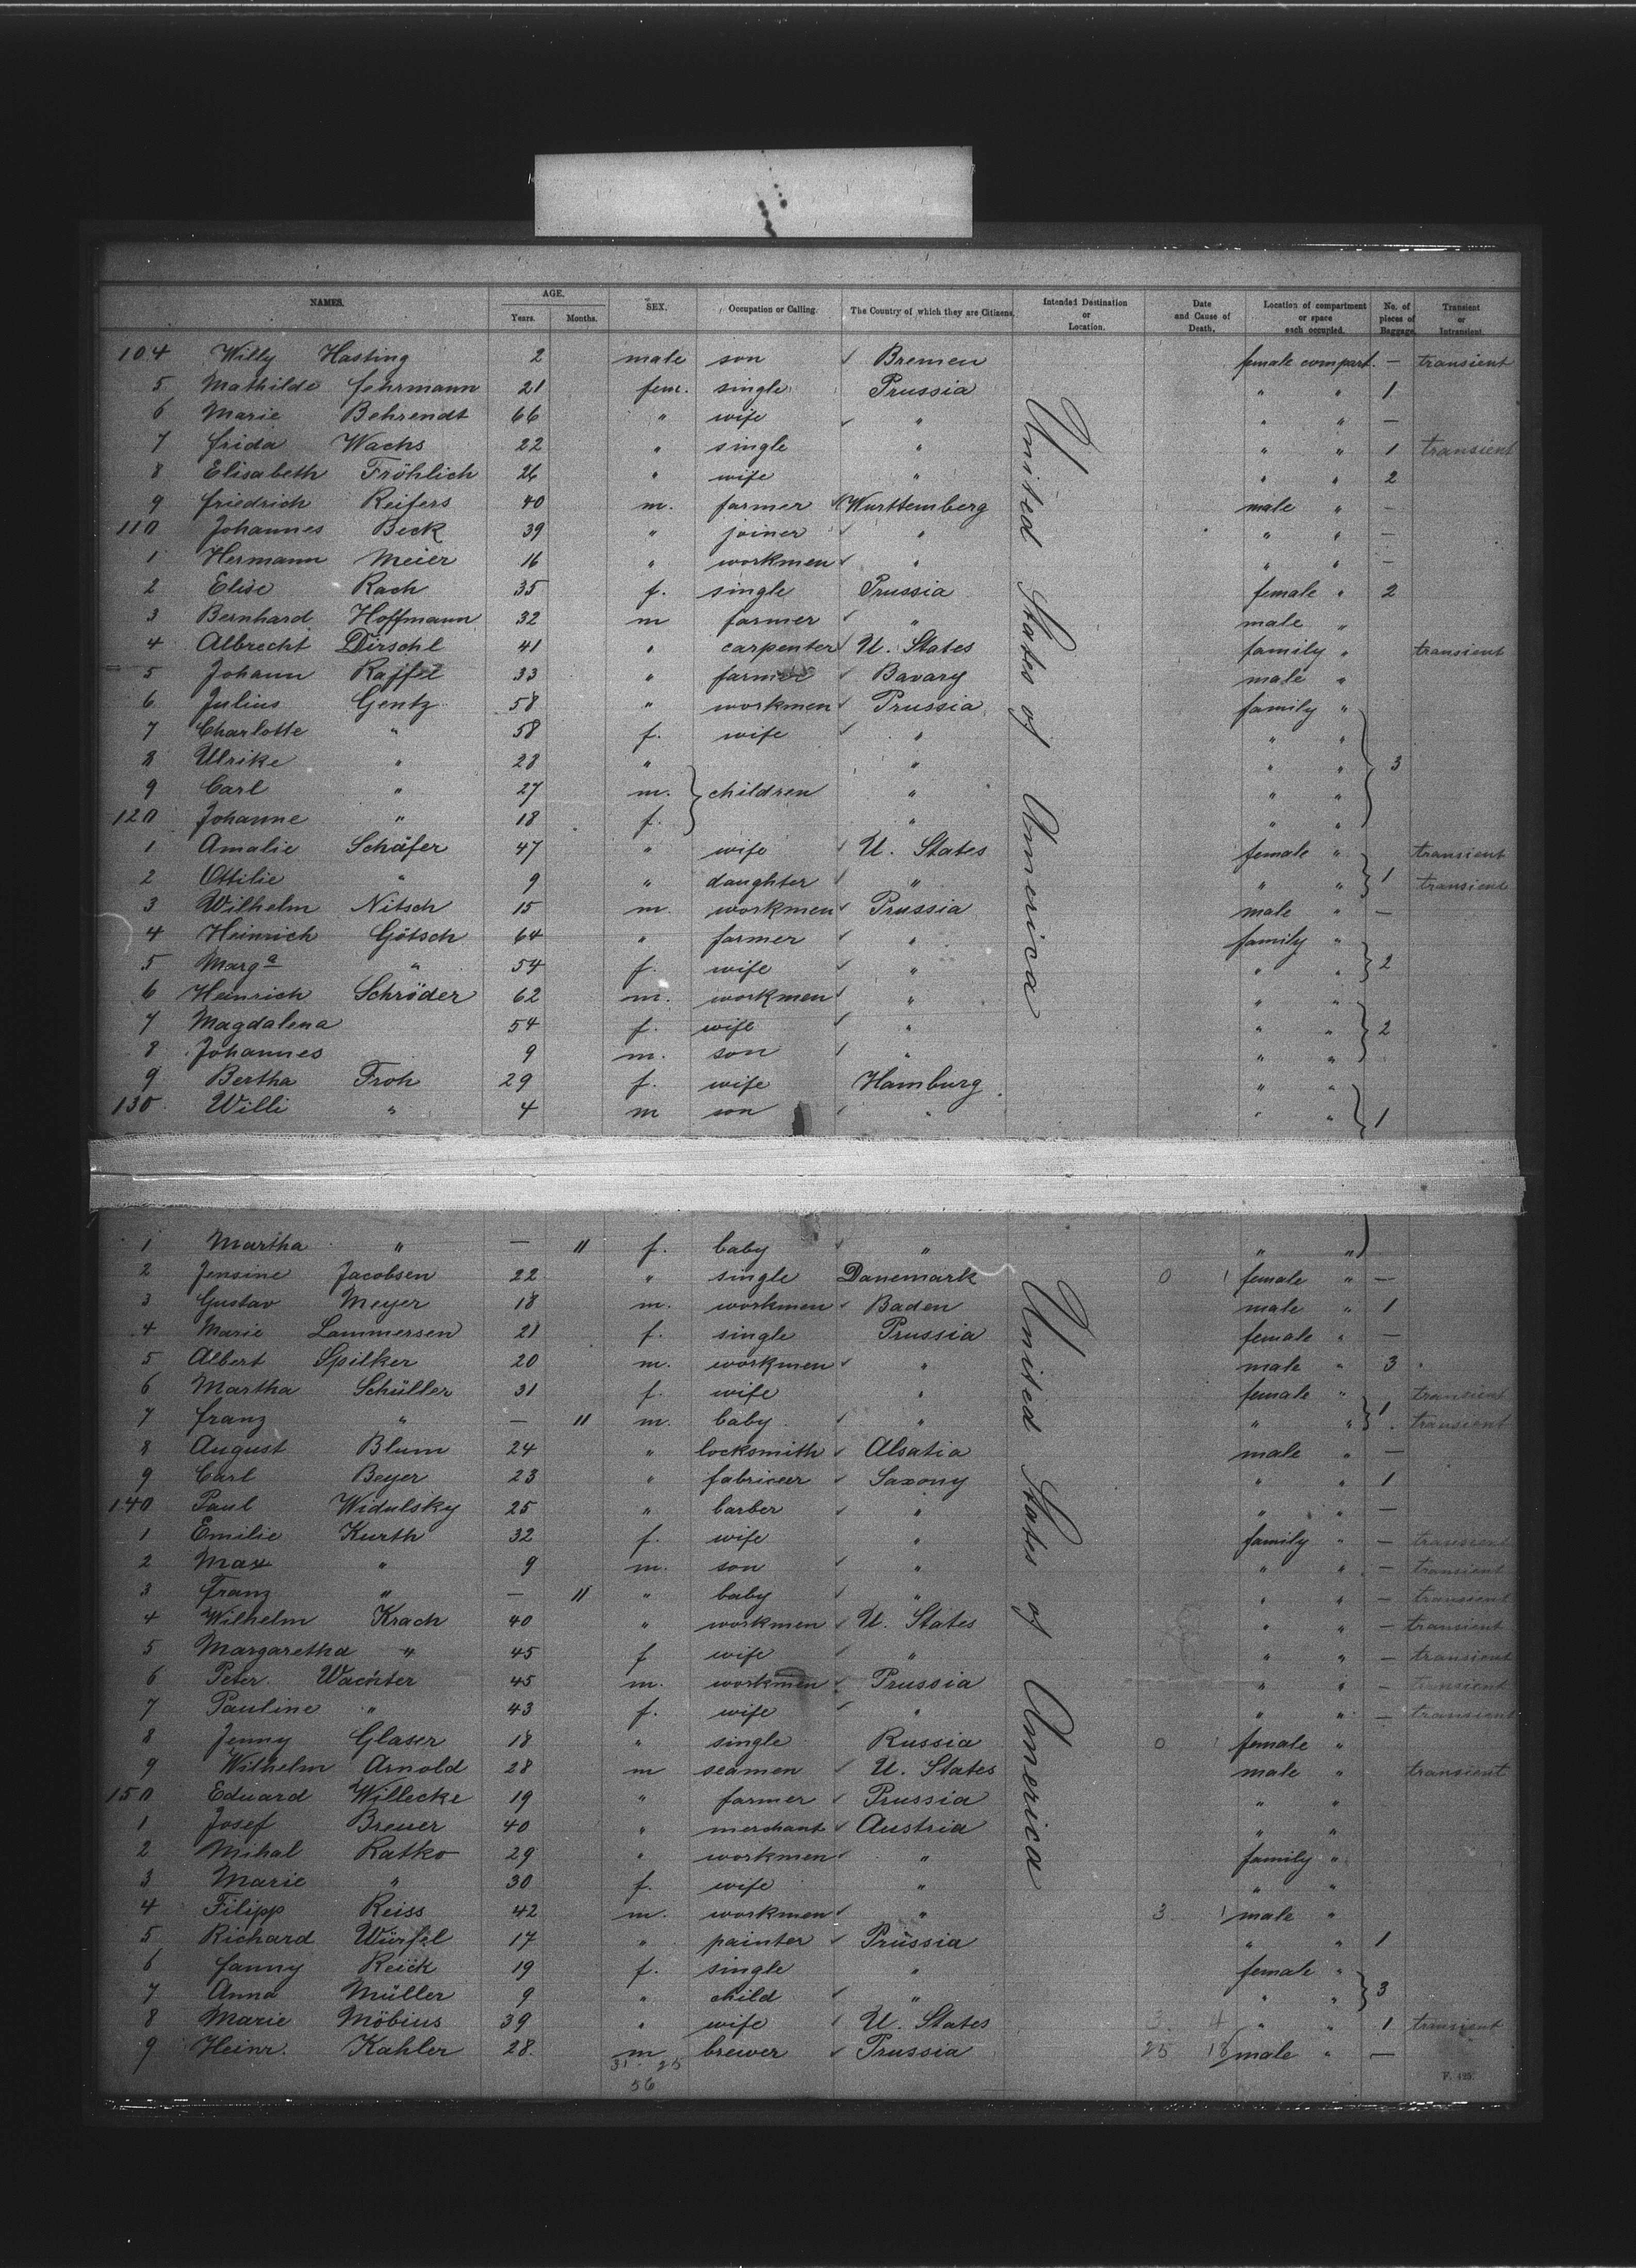 NAMES. AGE. Years. Months. SEX. Occupation or Calling. The Country of which they are Citizens. Intended Destination or Location. Date and Cause of Death. Location of compartment or space each occupied. No. of pieces of Baggage. Transient or Intransient.
104 Willy Hasting 2 male son Bremen female compart. — transient
5 Mathilde Fehrmann 21 fem. single Prussia " " 1
6 Marie Behrendt 66 " wife " " " —
7 Frida Wachs 22 " single " " " 1 transient
8 Elisabeth Fröhlich 26 " wife " " " 2
9 Friedrich Reifers 40 m. farmer Wurttemberg male " —
110 Johannes Beck 39 " joiner " " " —
1 Hermann Meier 16 " workmen " " " —
2 Elise Rach 35 f. single Prussia female " 2
3 Bernhard Hoffmann 32 m farmer " male "
4 Albrecht Dirschl 41 " carpenter U. States family " transient
5 Johann Raffel 33 " farmer Bavary male "
6 Julius Gentz 58 " workmen Prussia family "
7 Charlotte " 58 f. wife " " "
8 Ulrike " 28 " " " " 3
9 Carl " 27 m. children " " "
120 Johanne " 18 f. " " "
1 Amalie Schäfer 47 " wife U. States female " transient
2 Ottilie " 9 " daughter " " " 1 transient
3 Wilhelm Nitsch 15 m. workmen Prussia male " —
4 Heinrich Götsch 64 " farmer " family "
5 Marga " 54 f. wife " " " 2
6 Heinrich Schröder 62 m. workmen " " "
7 Magdalena 54 f. wife " " " 2
8 Johannes 9 m. son " " "
9 Bertha Froh 29 f. wife Hamburg " "
130 Willi " 4 m son " " " 1
United States of America
1 Martha " — 11 f. baby " " "
2 Jensine Jacobsen 22 " single Danemark 0 1 female " —
3 Gustav Meyer 18 m. workmen Baden male " 1
4 Marie Lammersen 21 f. single Prussia female " —
5 Albert Spilker 20 m. workmen " male " 3
6 Martha Schüller 31 f. wife " female " 1 transient
7 Franz " — 11 m. baby " " " transient
8 August Blum 24 " locksmith Alsatia male " —
9 Carl Beyer 23 " fabriceer Saxony " " 1
140 Paul Widulsky 25 " barber " " " —
1 Emilie Kurth 32 f. wife " family " — transient
2 Max " 9 m. son " " " — transient
3 Franz " — 11 " baby " " " — transient
4 Wilhelm Krach 40 " workmen U. States " " — transient
5 Margaretha " 45 f wife " " " — transient
6 Peter Wachter 45 m. workmen Prussia " " — transient
7 Pauline " 43 f. wife " " " — transient
8 Jenny Glaser 18 " single Russia 0 1 female "
9 Wilhelm Arnold 28 m seamen U. States male " transient
150 Eduard Willecke 19 " farmer Prussia " "
1 Josef Breuer 40 " merchant Austria " "
2 Mihal Ratko 29 " workmen " family "
3 Marie " 30 f. wife " " "
4 Filipp Reiss 42 m. workmen " 3 1 male "
5 Richard Würfel 17 " painter Prussia " " 1
6 Fanny Reick 19 f. single " female "
7 Anna Müller 9 " child " " " 3
8 Marie Möbius 39 " wife U. States 3 4 " " 1 transient
9 Heinr. Kahler 28 m brewer Prussia 25 18 male " —
31 25
56
United States of America
F. 125.